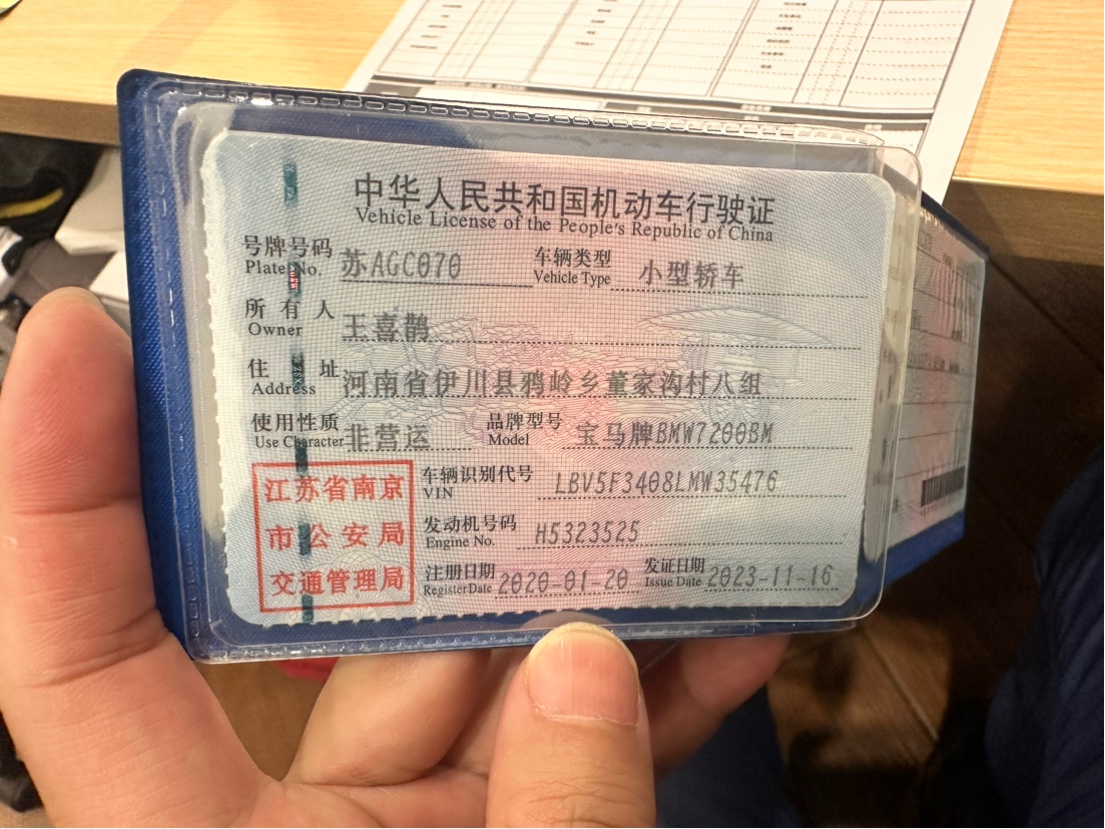 中华人民共和国机动车行驶证
Vehicle License of the People's Republic of China
号牌号码 苏AGC070 车辆类型 小型轿车
Plate No. Vehicle Type
所有人 王喜鹊
Owner
住址 河南省伊川县鸦岭乡董家沟村八组
Address
使用性质 非营运 品牌型号 宝马牌BMW7200BM
Use Character Model
江苏省南京
市公安局
交通管理局
车辆识别代号 LBV5F3408LMW35476
VIN
发动机号码 H5323525
Engine No.
注册日期 2020-01-20 发证日期 2023-11-16
Register Date Issue Date